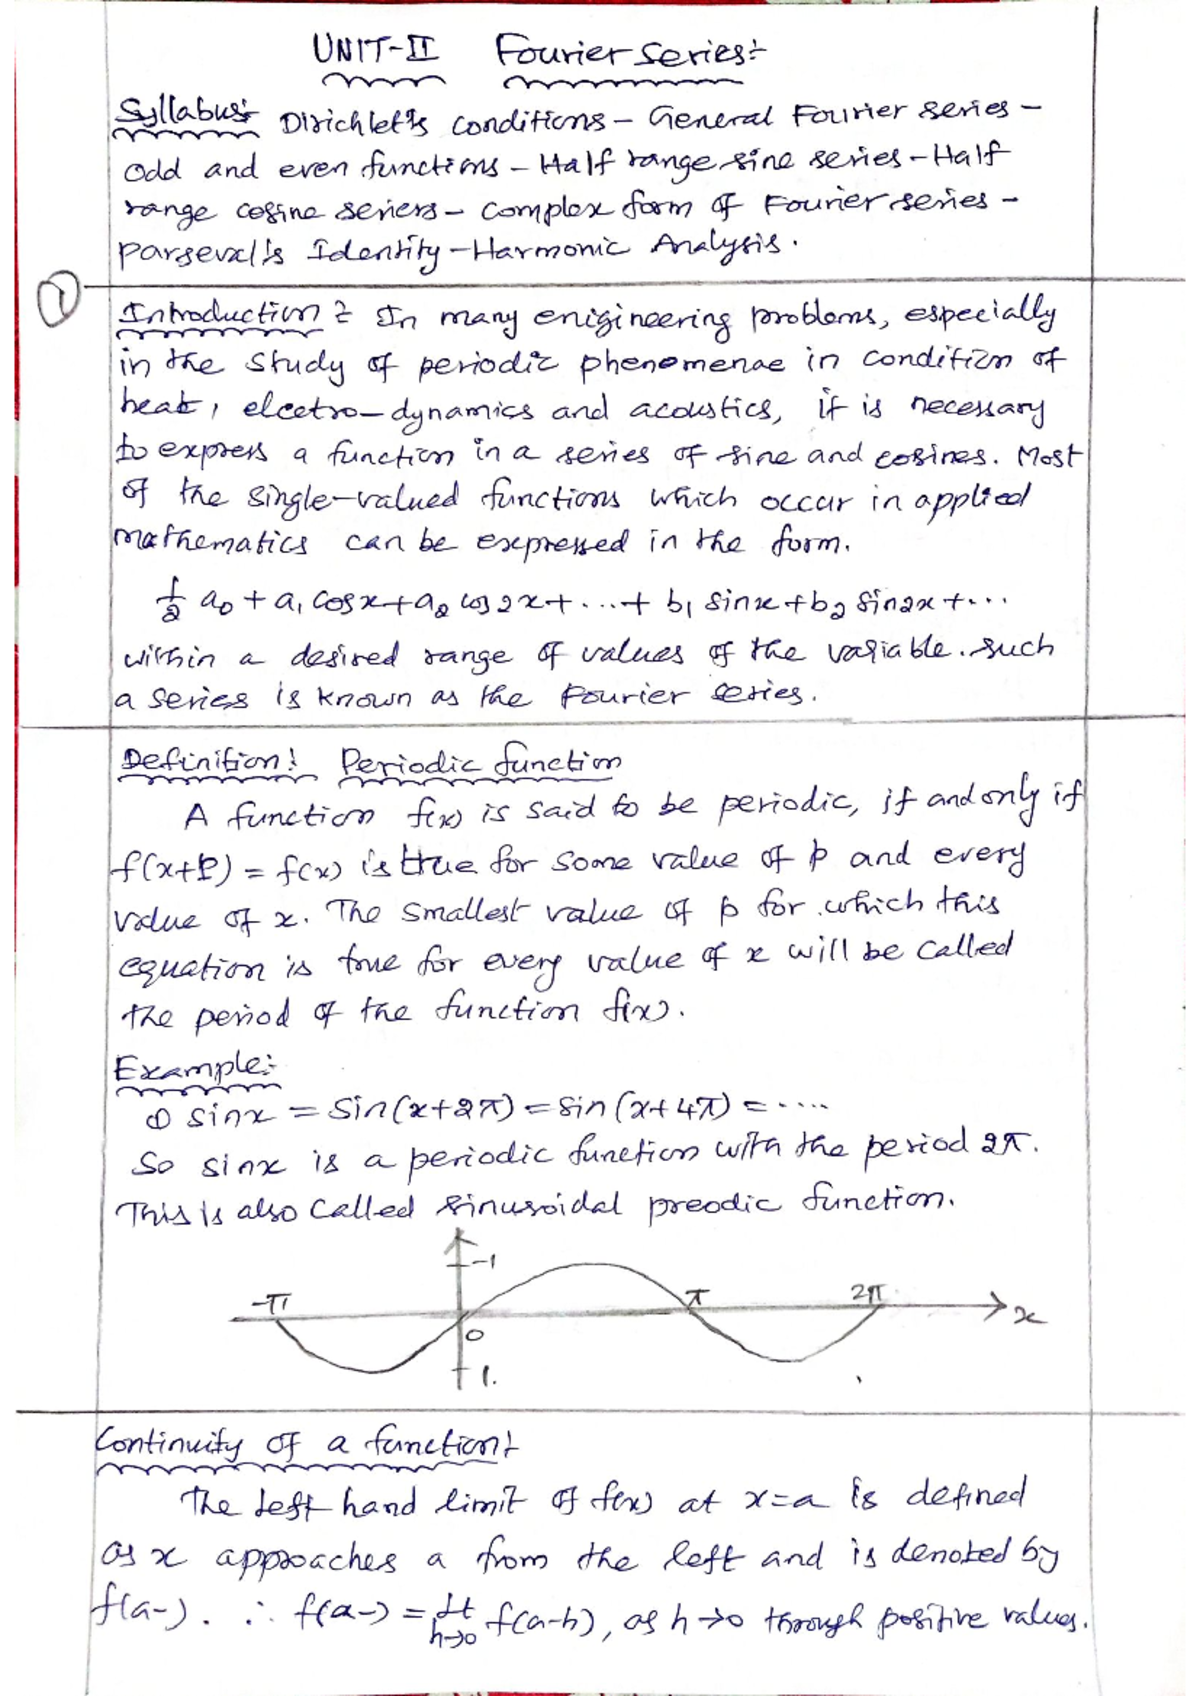 UNIT-II Fourier series:-
Syllabus:- Dirichlet's conditions - General Fourier series -
odd and even functions - Half range sine series - Half
range cosine seriers - complex form of Fourier series -
parseval's Identity - Harmonic Analysis.
1
Introduction :- In many enigineering problems, especially
in the study of periodic phenomenae in condition of
heat, elcetro-dynamics and acoustics, it is necessary
to express a function in a series of sine and cosines. Most
of the single-valued functions which occur in applied
mathematics can be expressed in the form.
1/2 a₀ + a₁ cosx + a₂ cos2x + ... + b₁ sinx + b₂ sin2x + ...
within a desired range of values of the variable. such
a series is known as the Fourier series.
Definition: Periodic function
A function f(x) is said to be periodic, if and only if
f(x+p) = f(x) is true for some value of p and every
value of x. The smallest value of p for which this
equation is true for every value of x will be called
the period of the function f(x).
Example:-
① sinx = sin(x+2π) = sin(x+4π) = ....
So sinx is a periodic function with the period 2π.
This is also called sinusoidal preodic function.
-1
-π π 2π
x
0
1.
Continuity of a function:-
The left hand limit of f(x) at x=a is defined
as x approaches a from the left and is denoted by
f(a-). ∴ f(a-) = lt h→0 f(a-h), as h→0 through positive values.